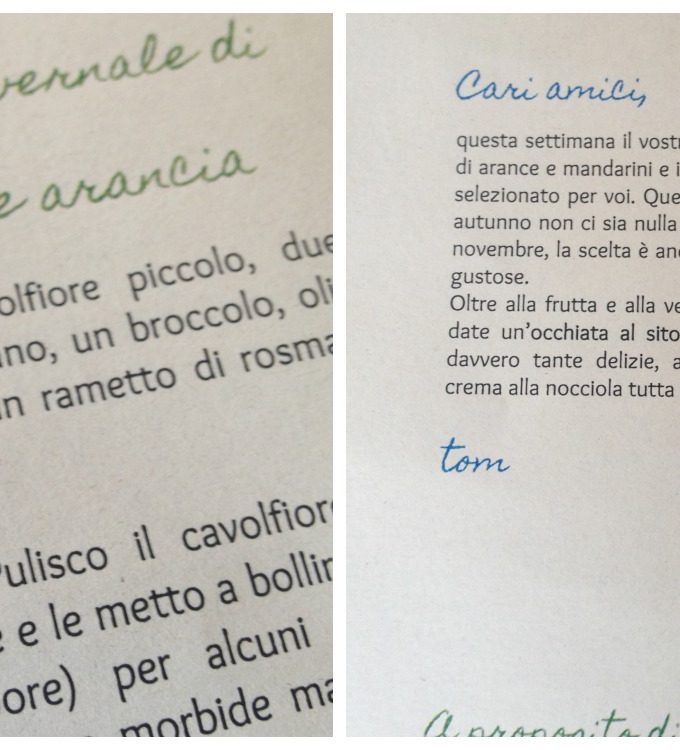 vernale di
e arancia
olfiore piccolo, due
ino, un broccolo, oli
un rametto di rosma
Pulisco il cavolfiore
e e le metto a bollir
ore) per alcuni
morbide ma
Cari amici,
questa settimana il vostr
di arance e mandarini e i
selezionato per voi. Que
autunno non ci sia nulla
novembre, la scelta è anc
gustose.
Oltre alla frutta e alla ve
date un'occhiata al sito
davvero tante delizie, a
crema alla nocciola tutta
tom
A proposito di